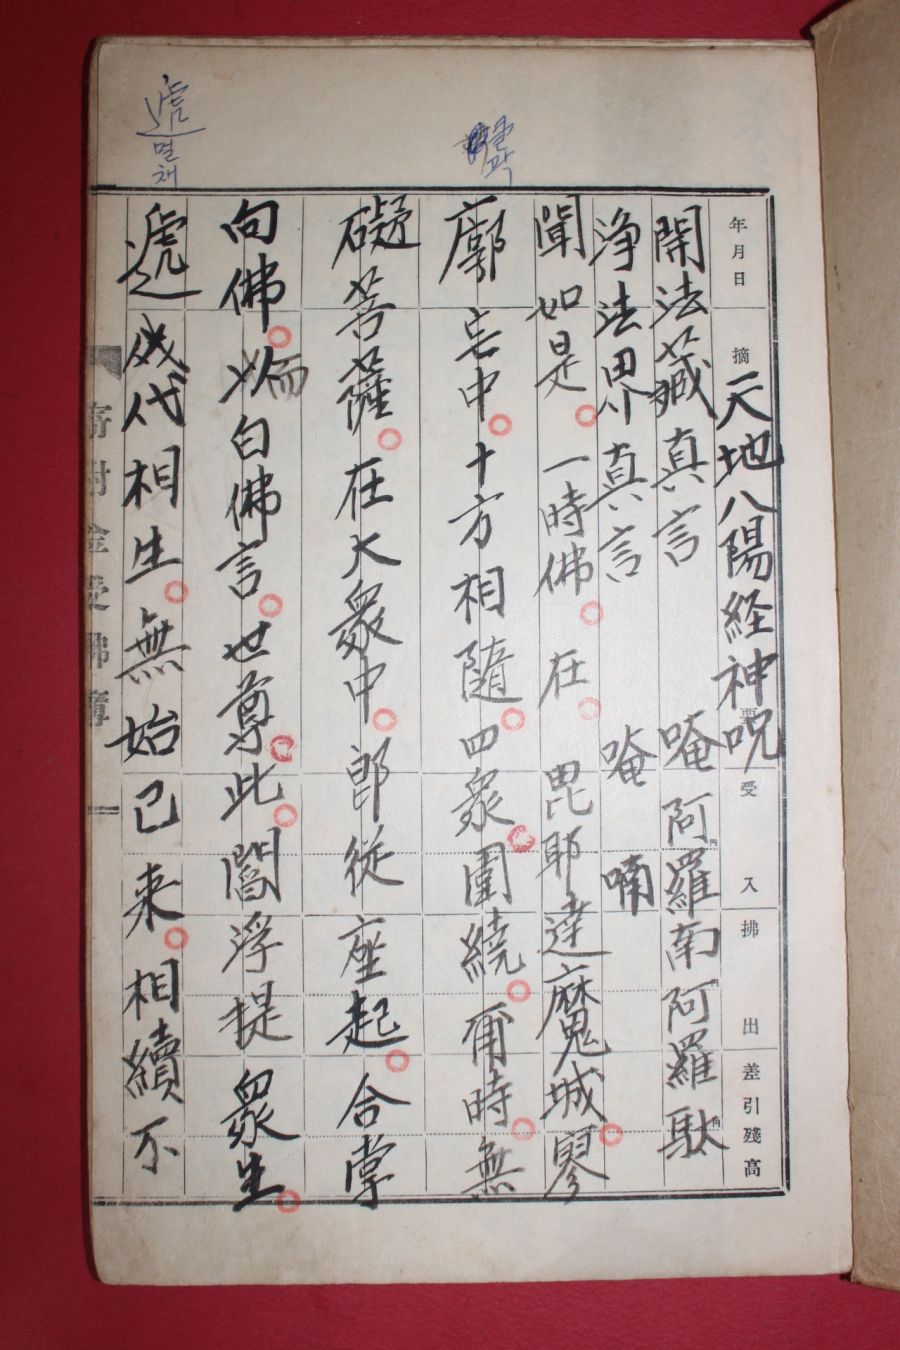 年月日 摘要 受入 拂出 差引殘高
天地八陽経神呪
開法藏真言 唵阿羅南阿羅馱
净法界真言 唵喃
聞如是。一時佛。在。毘耶達魔城。寥
廓宅中。十方相隨。四衆。圍繞。甭時。無
礙菩薩。在大衆中。郎從座起。合掌
向佛。以而白佛言。世尊。此。閻浮提衆生。
遞代相生。無始已来。相續不
遞
멸
채
곽